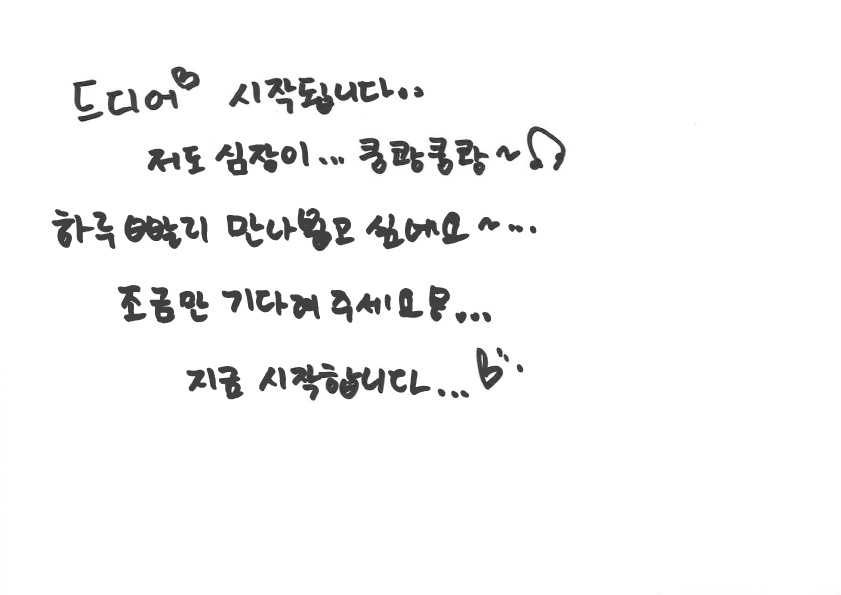 드디어♡ 시작됩니다..
저도 심장이... 쿵쾅쿵쾅~
하루 빨리 만나뵙고 싶에요~...
조금만 기다려 주세요!...
지금 시작합니다...♡